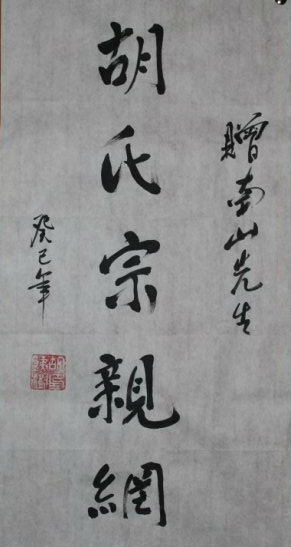 贈南山先生
胡氏宗親網
癸巳年